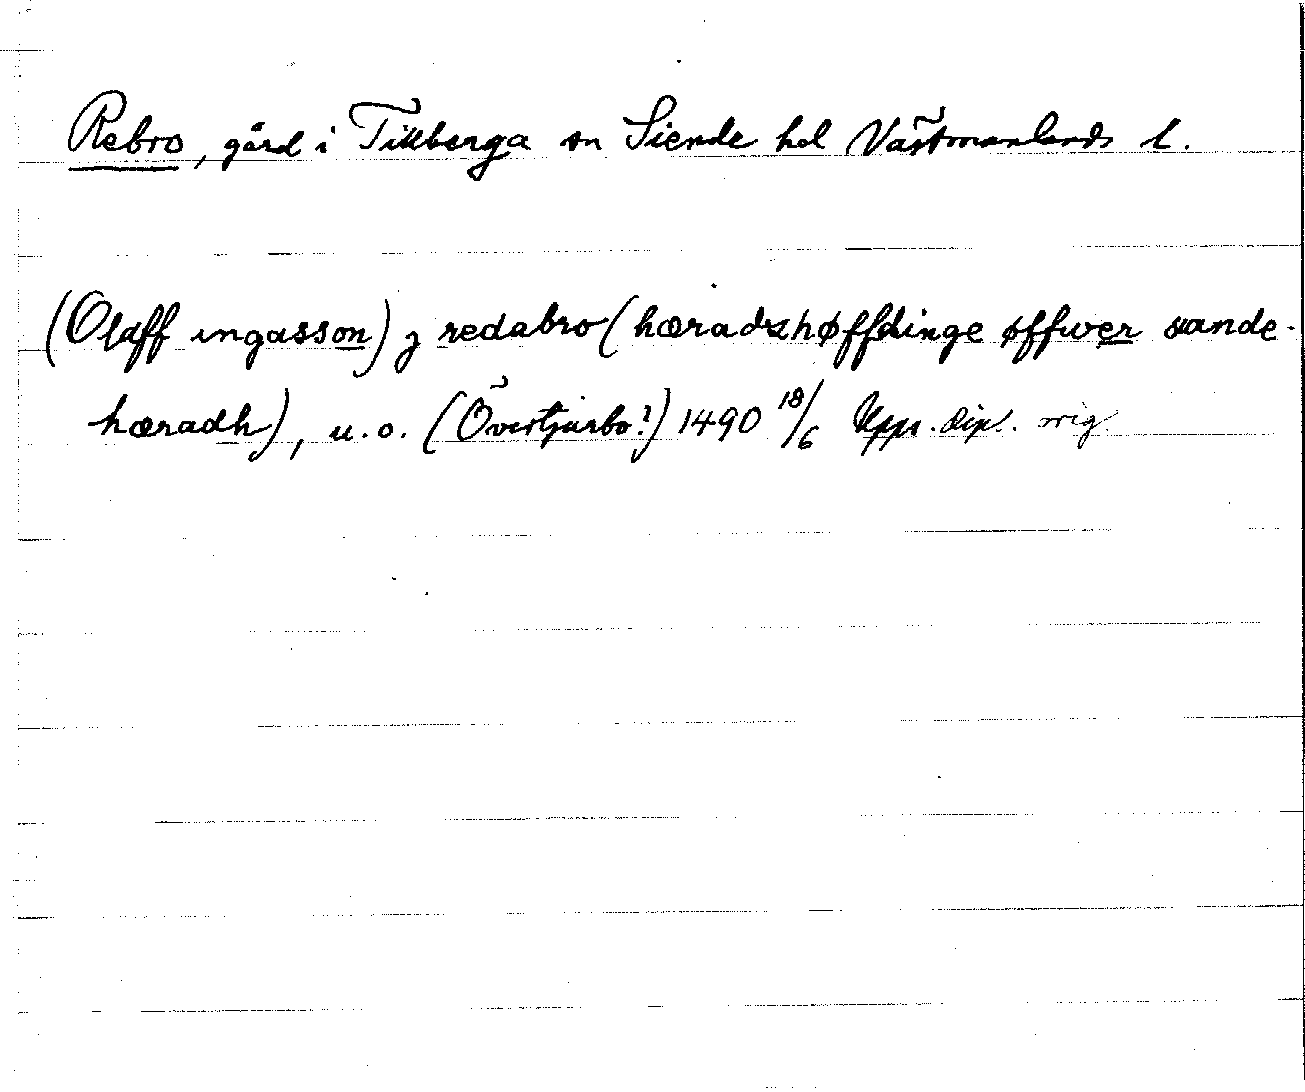 Rebro, gård i Tillberga sn Siende hd Västmanlands l.
(Olaff ingasson) j redabro (hæradzhøffdinge øffwer siande-
hæradh), u.o. (Övertjärbo?) 1490 18/6 Upps. dipl. orig.